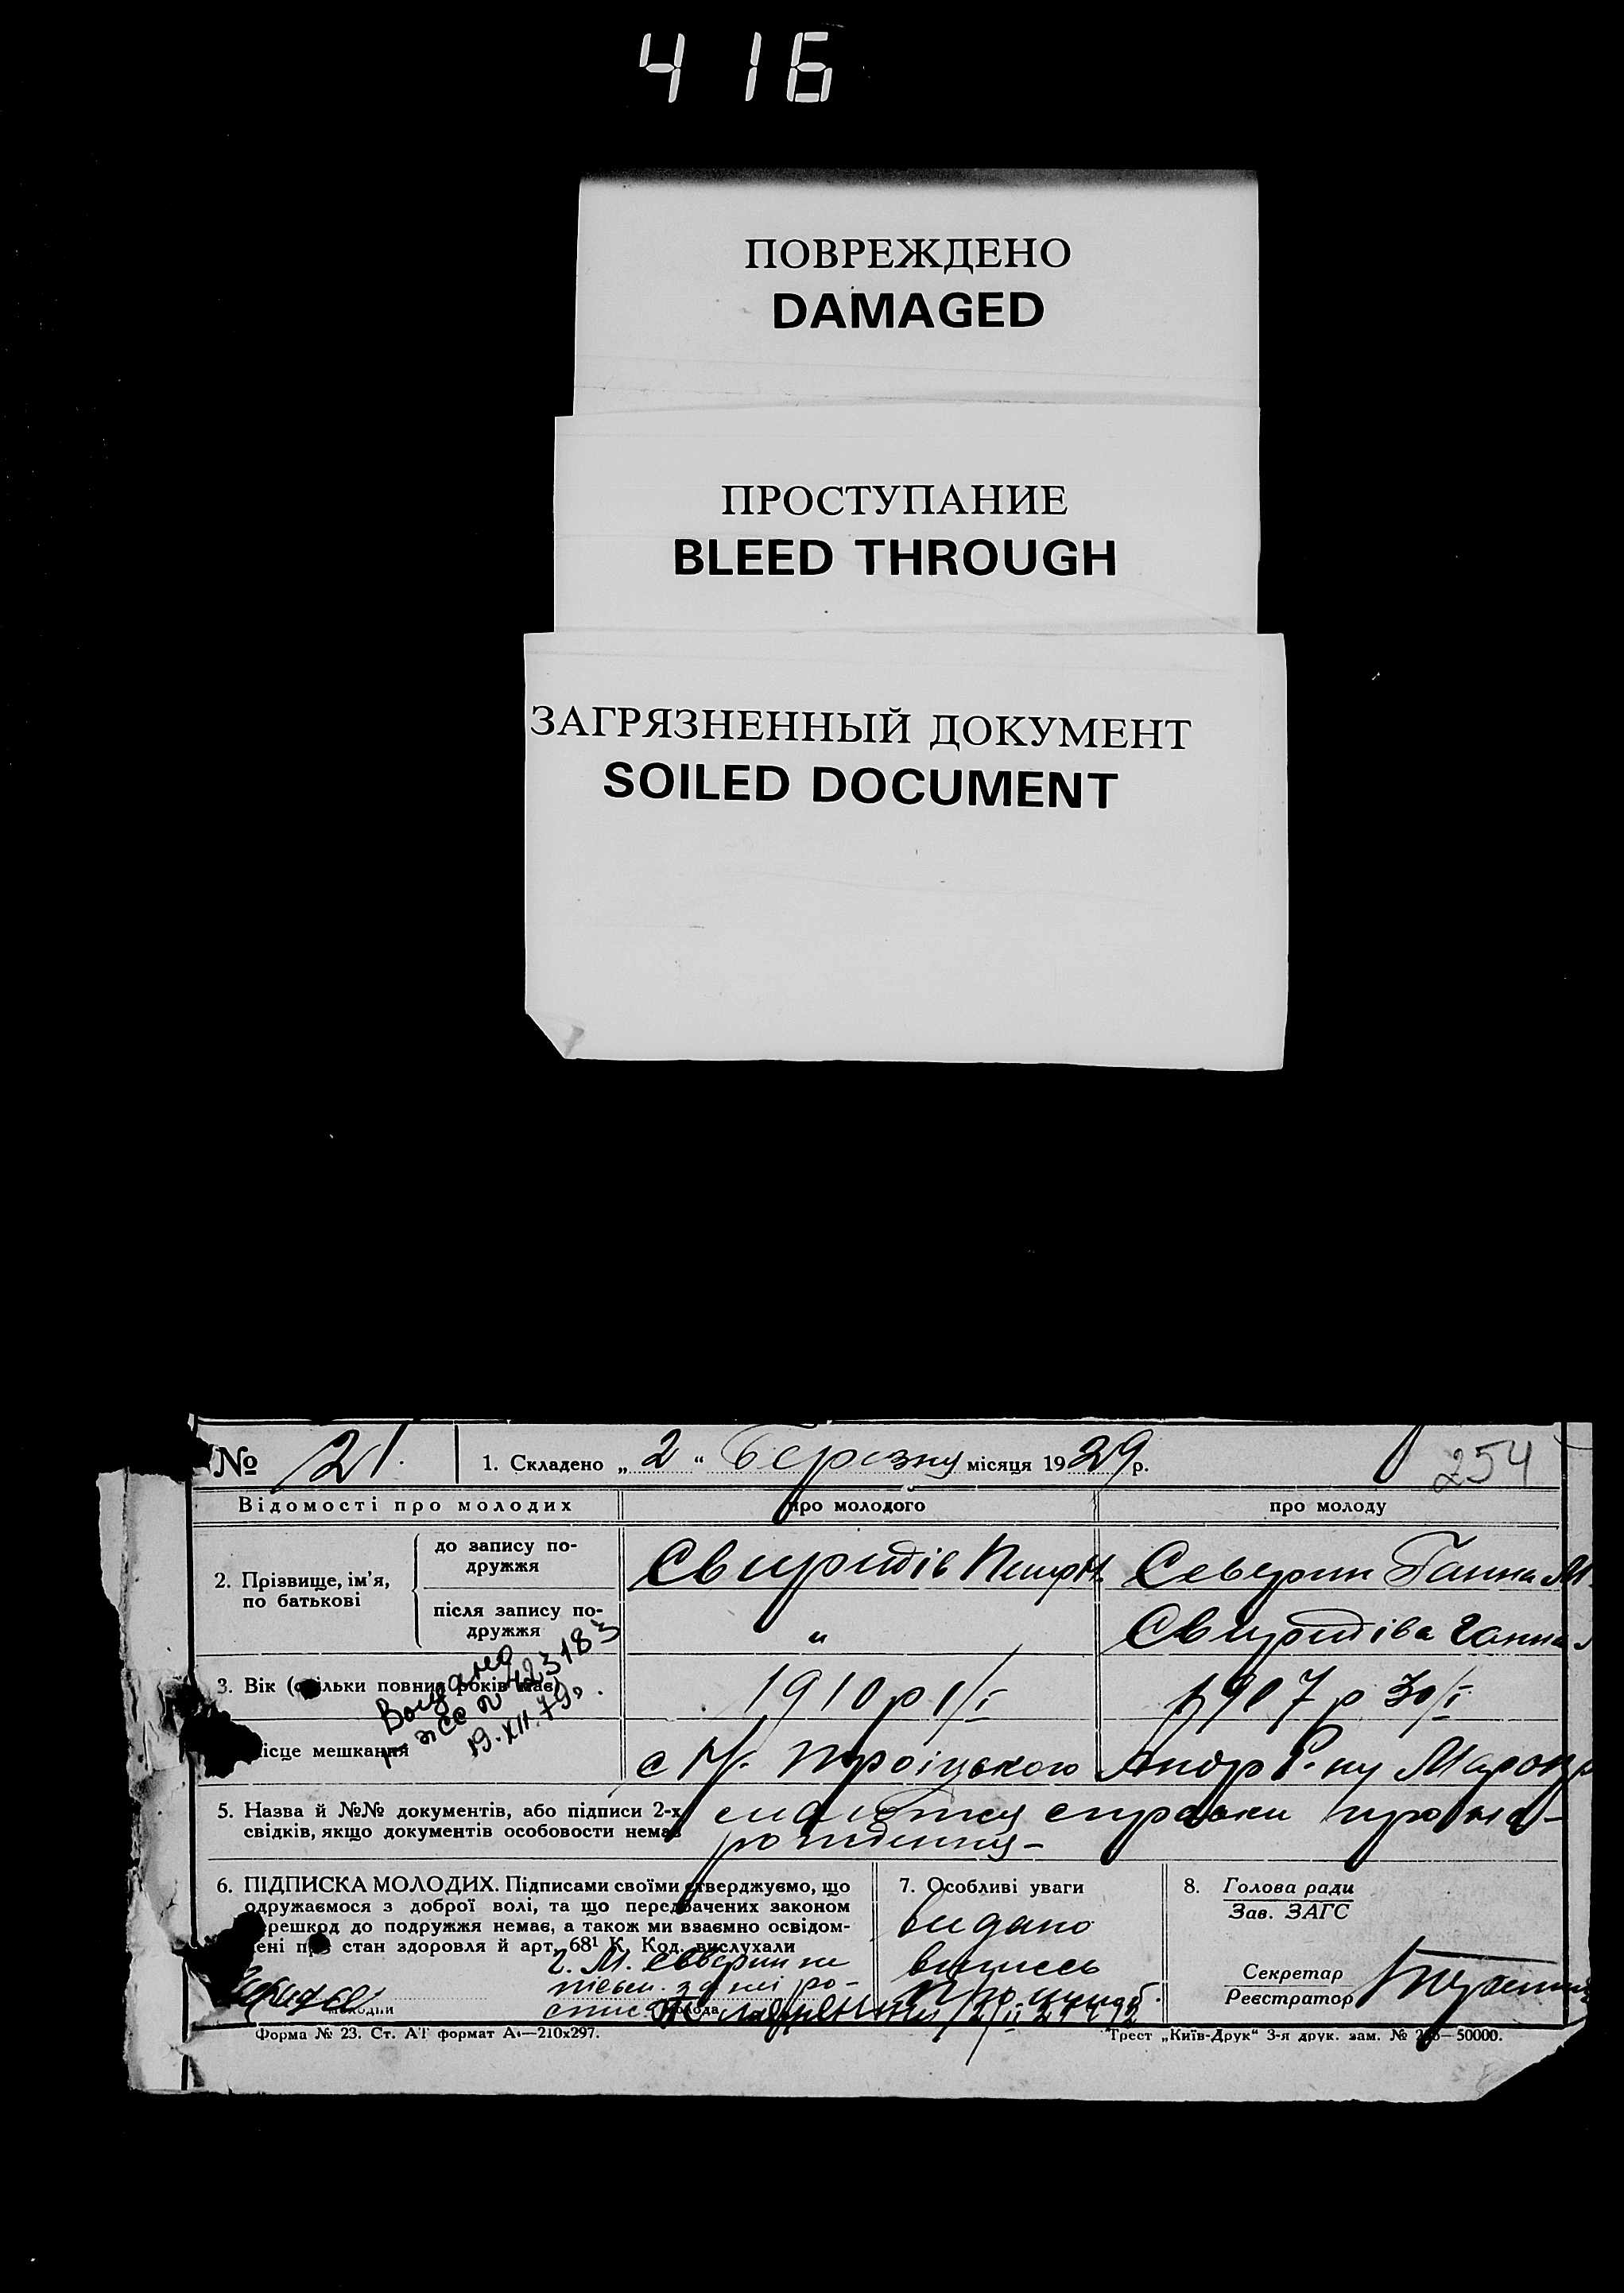 416
ПОВРЕЖДЕНО
DAMAGED
ПРОСТУПАНИЕ
BLEED THROUGH
ЗАГРЯЗНЕННЫЙ ДОКУМЕНТ
SOILED DOCUMENT
254
№ 21. 1. Складено „ 2 “ Березня місяця 1929 р.
Відомості про молодих про молодого про молоду
2. Прізвище, ім’я, по батькові
до запису по-
дружжя
Свиридів Северин Ганна М.
після запису по-
дружжя
" Свиридіва Ганна
3. Вік (скільки повних років має) 1910 р 1/I 1907 р 30/I
Видано
№ 423183
19.XII.79р.
місце мешкання с Троіцького
5. Назва й №№ документів, або підписи 2-х
свідків, якщо документів особовости немає
справки про на-
родження-
6. ПІДПИСКА МОЛОДИХ. Підписами своїми стверджуємо, що
одружаємося з доброї волі, та що передбачених законом
перешкод до подружжя немає, а також ми взаємно освідом-
лені про стан здоровля й арт. 68¹ К. Код. вислухали
Г. М. Северин не
письм. за неі ро-
спис.
молодий
молода
7. Особливі уваги
видано
випись
про шлюб.
8. Голова ради
Зав. ЗАГС
Секретар
Реєстратор
Форма № 23. Ст. АТ формат А₄—210х297.
Трест „Київ-Друк“ 3-я друк. зам. № —50000.